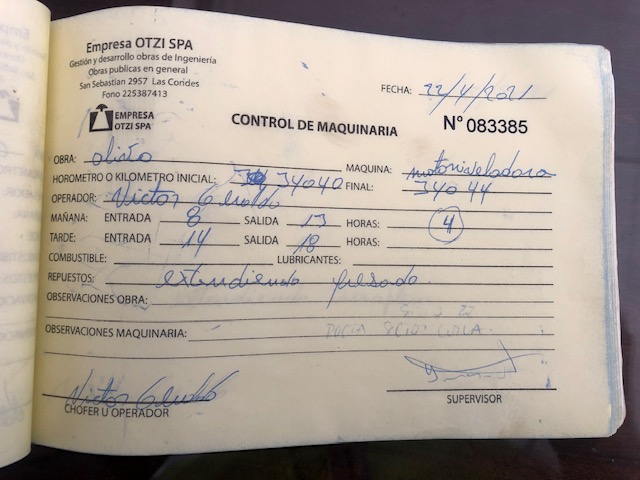 Empresa OTZI SPA
Gestión y desarrollo obras de Ingeniería
Obras públicas en general
San Sebastián 2957 Las Condes
Fono 225387413
EMPRESA
OTZI SPA
CONTROL DE MAQUINARIA
FECHA:
N° 083385
OBRA: MAQUINA: motoniveladora
HOROMETRO O KILOMETRO INICIAL: 34040 FINAL: 34044
OPERADOR: Victor
MAÑANA: ENTRADA 8 SALIDA 13 HORAS: 4
TARDE: ENTRADA 14 SALIDA 18 HORAS:
COMBUSTIBLE: LUBRICANTES:
REPUESTOS:
OBSERVACIONES OBRA: extendiendo
OBSERVACIONES MAQUINARIA:
Victor
CHOFER U OPERADOR
SUPERVISOR